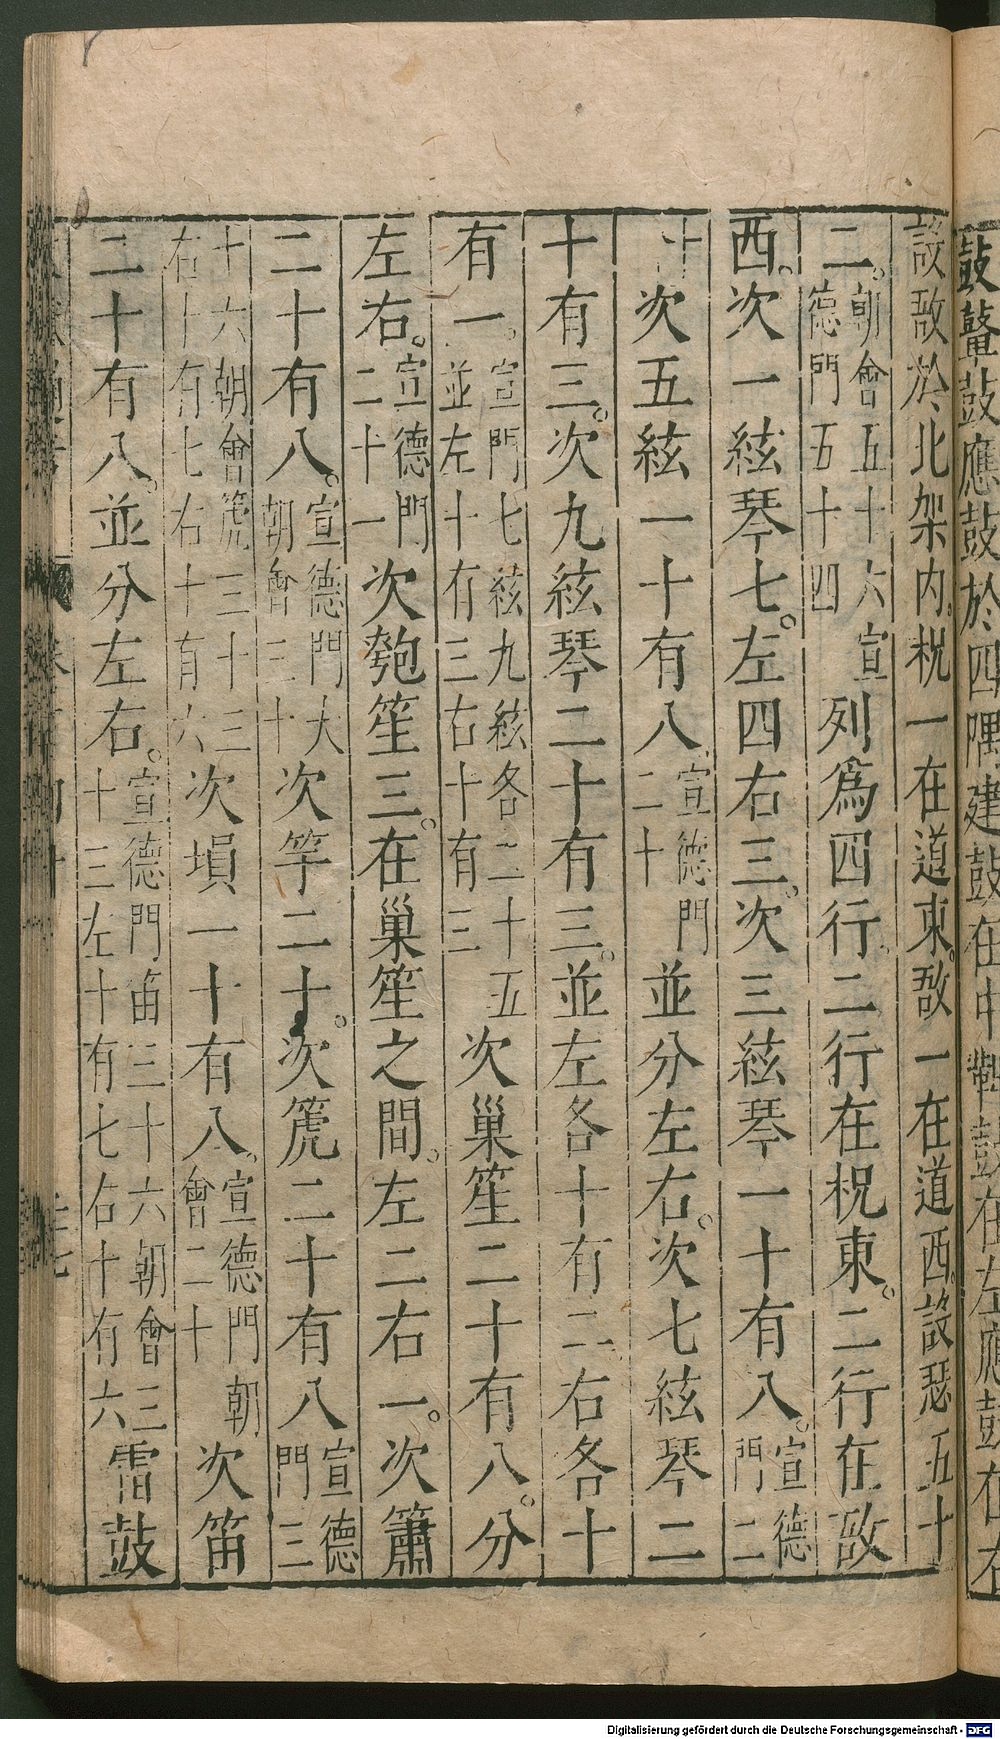 鼓鼙鼓應鼓於四隅建鼓在中鞞鼓在左應鼓在右
設敔於北架内。柷一在道東。敔一在道西。設瑟五十
二。朝會五十六宣德門五十四列爲四行。二行在柷東。二行在敔
西。次一絃琴七。左四右三。次三絃琴一十有八。宣德門二
十次五絃一十有八。宣德門二十並分左右。次七絃琴二
十有三。次九絃琴二十有三。並左各十有二右各十
有一。宣門七絃九絃各二十五並左十有三右十有三次巢笙二十有八。分
左右。宣德門二十一次匏笙三。在巢笙之間。左二右一。次簫
二十有八。宣德門大朝會三十次竽二十。次篪二十有八宣德門三
十六朝會篪三十三右十有七右十有六次塤一十有八。宣德門朝會二十次笛
二十有八。並分左右。宣德門笛三十六朝會三十三左十有七右十有六雷鼓
Digitalisierung gefördert durch die Deutsche Forschungsgemeinschaft - DFG